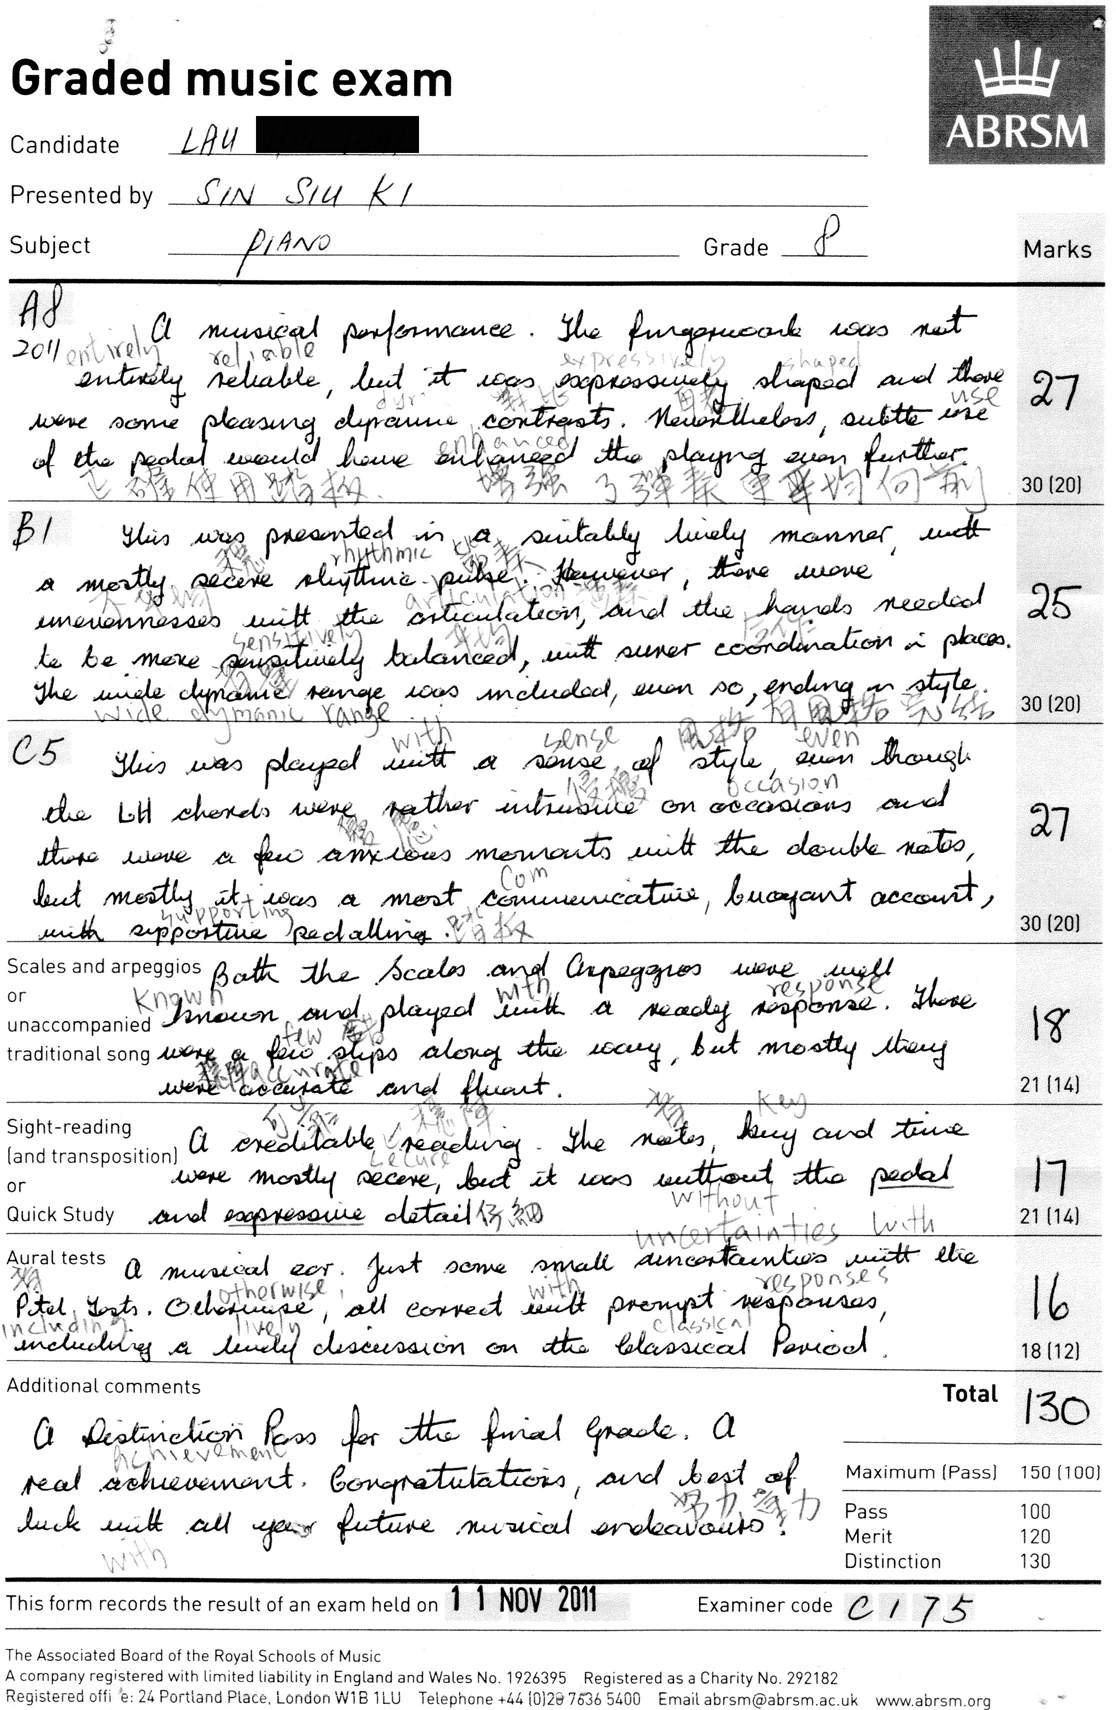 Graded music exam
ABRSM
Candidate LAU
Presented by SIN SIU KI
Subject PIANO Grade 8 Marks
A8
2011
A musical performance. The fingerwork was not
entirely reliable expressively shaped
entirely reliable, but it was expressively shaped and there 27
dyn. use
were some pleasing dynamic contrasts. Nevertheless, subtle use
enhanced
of the pedal would have enhanced the playing even further.
使用踏板 增強了彈奏 30 (20)
B1 This was presented in a suitably lively manner, with
rhythmic
a mostly secure rhythmic pulse. However, there were
articulation
unevennesses with the articulation, and the hands needed 25
sensitively 平均
to be more sensitively balanced, with surer coordination in places.
The wide dynamic range was included, even so, ending in style.
wide dymanic range 30 (20)
with sense 風格 even
C5 This was played with a sense of style, even though
occasion
the LH chords were rather intrusive on occasions and
there were a few anxious moments with the double notes, 27
com
but mostly it was a most communicative, buoyant account,
supporting
with supportive pedalling. 踏板 30 (20)
Scales and arpeggios
or
unaccompanied
traditional song
Both the Scales and Arpeggios were well
Known with response
known and played with a ready response. There
few
were a few slips along the way, but mostly they 18
accurate
were accurate and fluent. 21 (14)
Sight-reading
(and transposition)
or
Quick Study
Key
A creditable reading. The notes, key and time
secure
were mostly secure, but it was without the pedal 17
without
and expressive detail 仔細 21 (14)
uncertainties with
Aural tests A musical ear. Just some small uncertainties with the
otherwise, with responses
Pitch Tests. Otherwise, all correct with prompt responses, 16
including lively classical
including a lively discussion on the Classical Period. 18 (12)
Additional comments
A Distinction Pass for the final Grade. A
achievement
real achievement. Congratulations, and best of
努力
luck with all your future musical endeavours!
with
Total 130
Maximum (Pass) 150 (100)
Pass 100
Merit 120
Distinction 130
This form records the result of an exam held on 11 NOV 2011 Examiner code C175
The Associated Board of the Royal Schools of Music
A company registered with limited liability in England and Wales No. 1926395 Registered as a Charity No. 292182
Registered offi e: 24 Portland Place, London W1B 1LU Telephone +44 (0)20 7636 5400 Email abrsm@abrsm.ac.uk www.abrsm.org